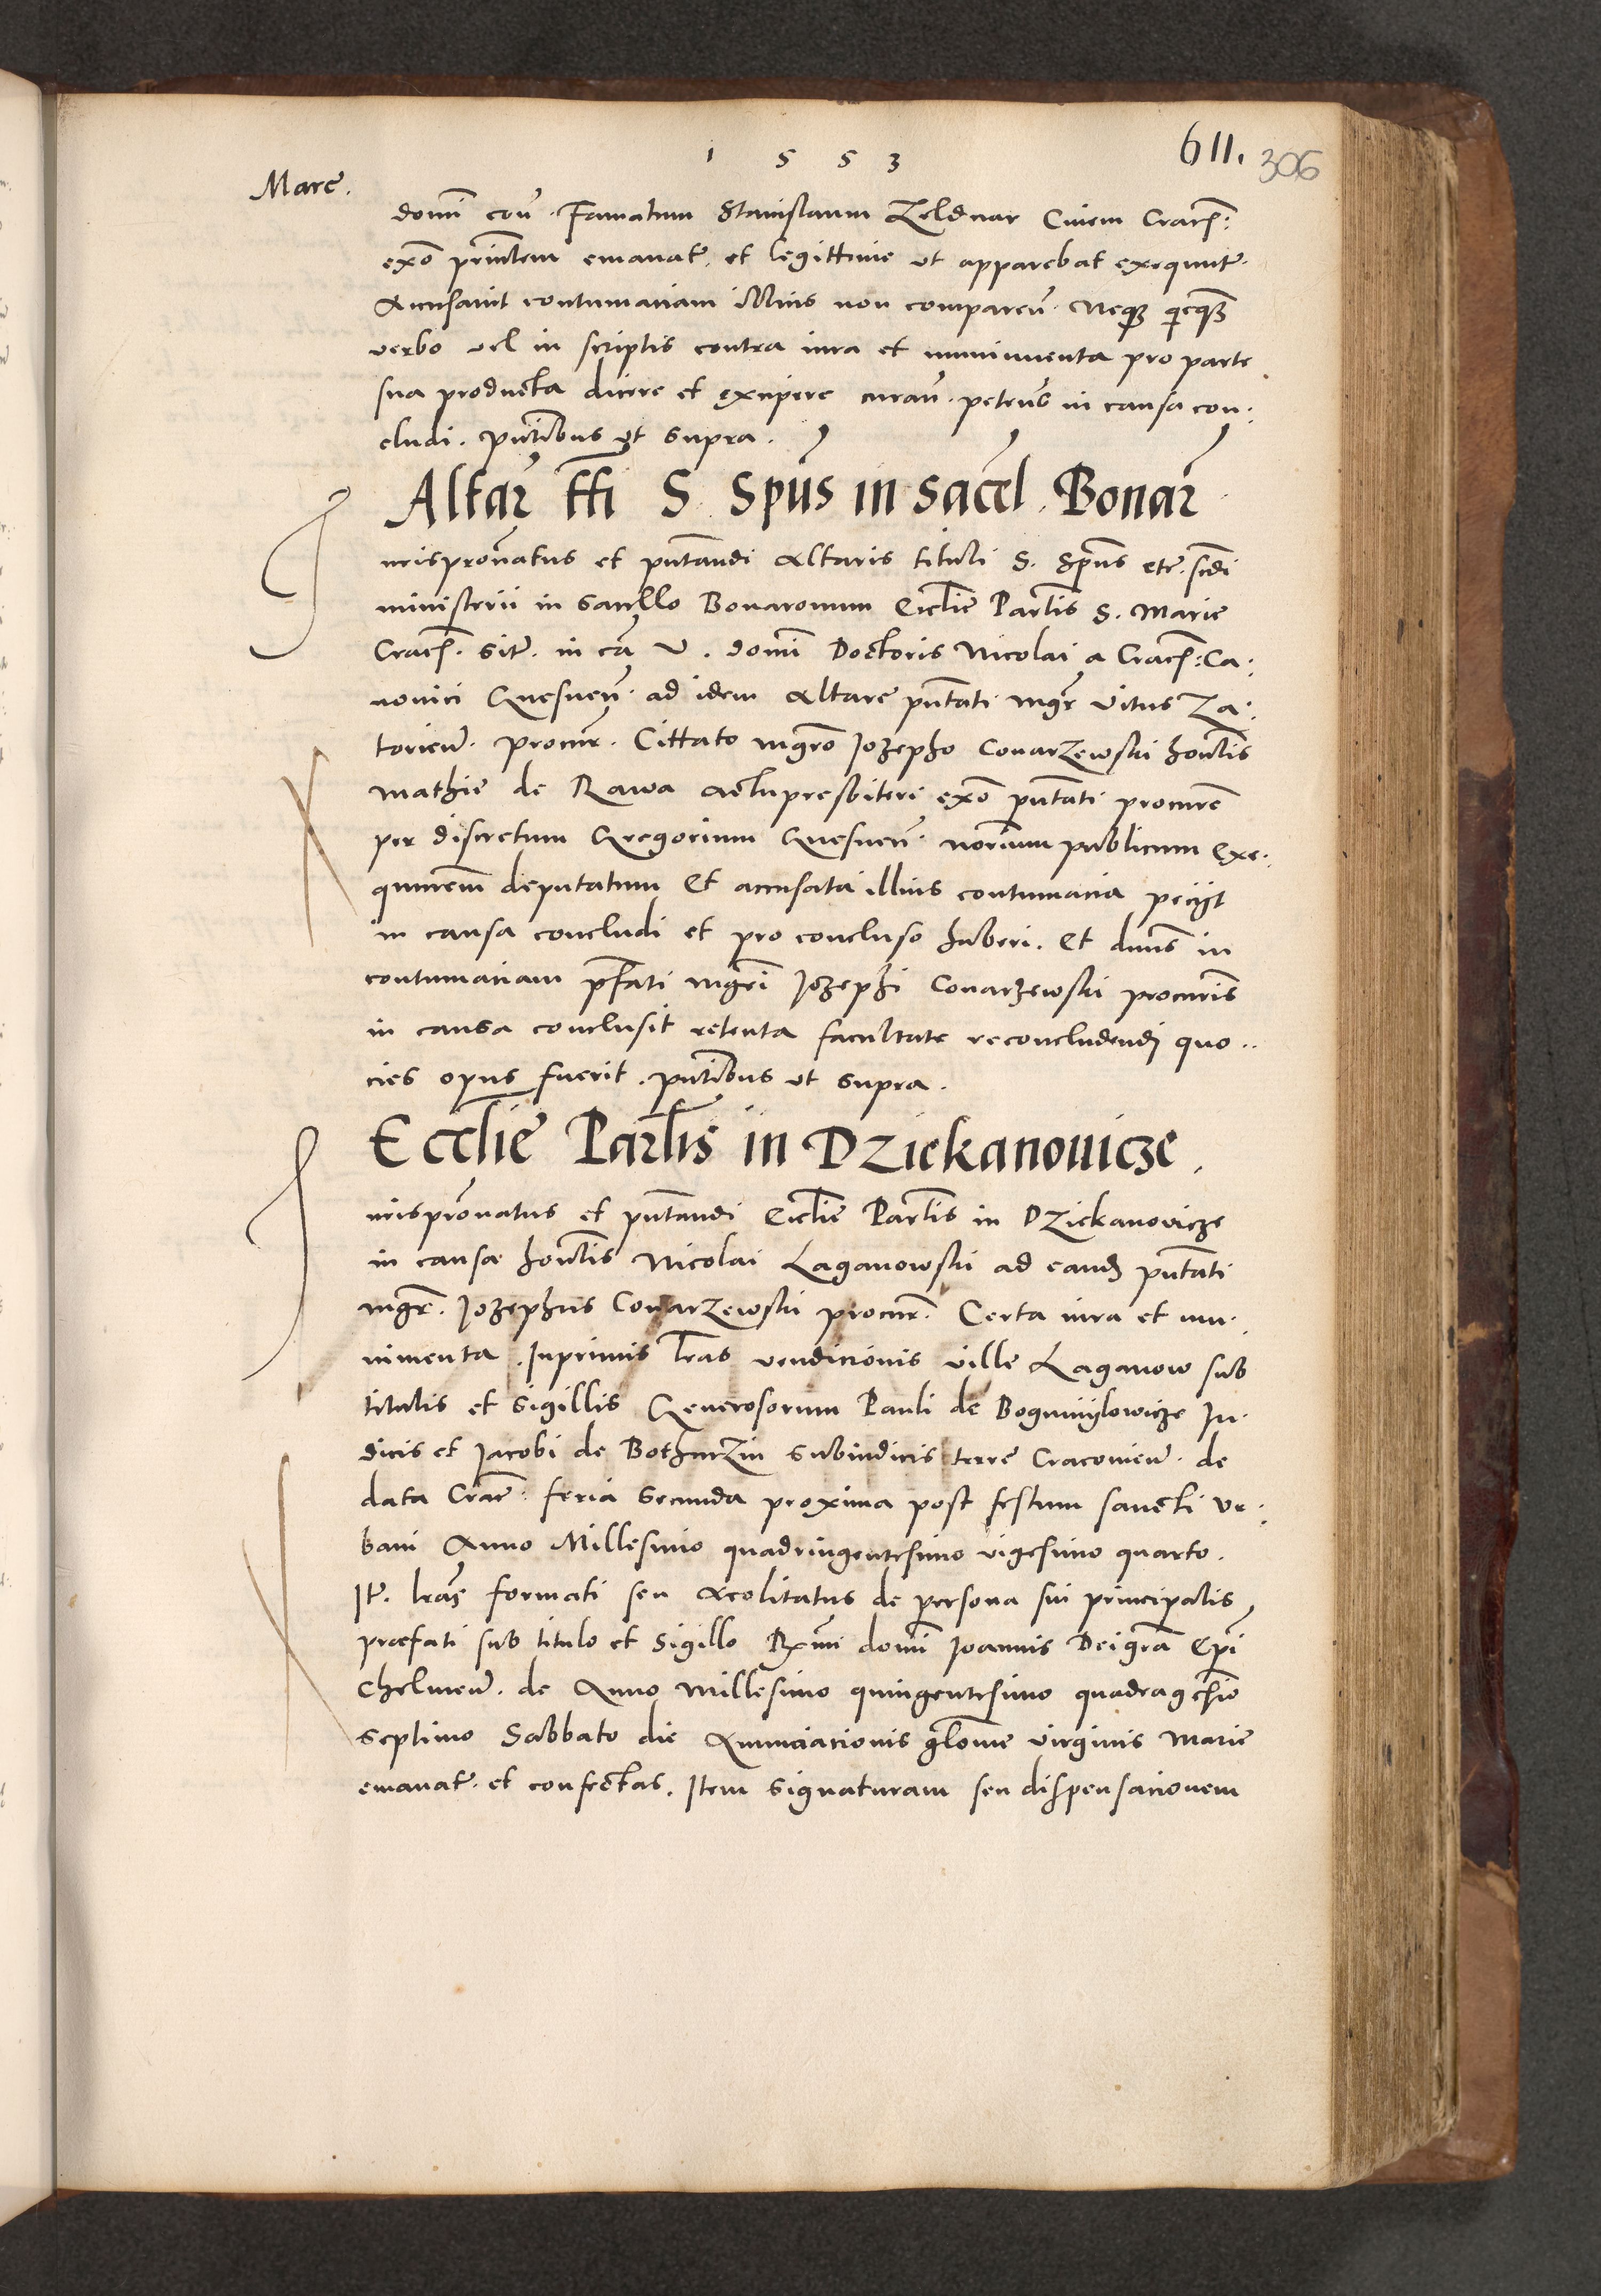 1553
611. 306
Marc̃.
domi͂ con͂. Famatum Stanislaum Zeldnar Ciuem Crac̃:
exo͂ prin͂lem emanat̃. et legittime vt apparebat exequut̃.
Accusauit contumatiam illius non comparen͂. Neq3 q͂cq3
verbo vel in scriptis contra iura et munimenta pro parte
sua producta dicere et excipere curan͂. peten͂s in causa con:
cludi. pn͂tibus vt supra.
Altar̃ tt͂i S. Sp͂us in Sacel. Bonar̃
Jurispron͂atus et pn͂tandi Altaris tituli S. Sp͂us etc̃. scd͂i
ministerii in Sacello Bonaronum Ecl͂ie Par͂lis S. Marie
Crac̃. Sit̃. in ca͂ V. domi͂ Doctoris Nicolai a Crac̃: Ca:
nonici Gnesnen͂. ad idem Altare pn͂tati mgr̃ Vitus Za:
torien͂. procur̃. Cittato mgr͂o Jozepho Conarzewski hon͂lis
Mathie de Rawa actu presbiteri exo͂ pn͂tati procur͂e
per discretum Gregorium Gnesnen͂. nor͂ium publicum Exe:
qutur͂em deputatum Et accusata illius contumacia pecijt
in causa concludi et pro concluso haberi. Et dn͂us in
contumatiam p͂fati mgr͂i Jozephi Conarzewski procur͂is
in causa conclusit retenta facultate reconcludendi quo..
cies opus fuerit. pn͂tibus vt supra.
Eccl͂ie Par͂lis in Dziekanouicze.
Jurispron͂atus et pn͂tandi Ecl͂ie Par͂lis in Dziekanovicze
in causa hon͂lis Nicolai Laganowski ad eand3 pn͂tati
mgr̃. Jozephus Conarzewski procur̃. Certa iura et mu:
nimenta. Inprimis l͂ras vendicionis ville Laganow sub
titulis et sigillis Generosorum Pauli de Bogumylowicze Ju:
dicis et Jacobi de Bothurzin Subiudicis terre Cracouien͂. de
data Crac̃. feria Secunda proxima post festum sancti Vr:
bani Anno Millesimo quadringentesimo vigesimo quarto.
It̃. l͂ras formati seu Acolitatus de persona sui principalis
præfati sub titulo et Sigillo Rx͂mi domi͂ Joannis Dei gr͂a Ep͂i
Chelmen͂. de Anno Millesimo quingentesimo quadragesi͂o
Septimo Sabbato die Annuciacionis gl͂ose virginis Marie
emanat̃. et confectas. Item Signaturam seu dispensacionem